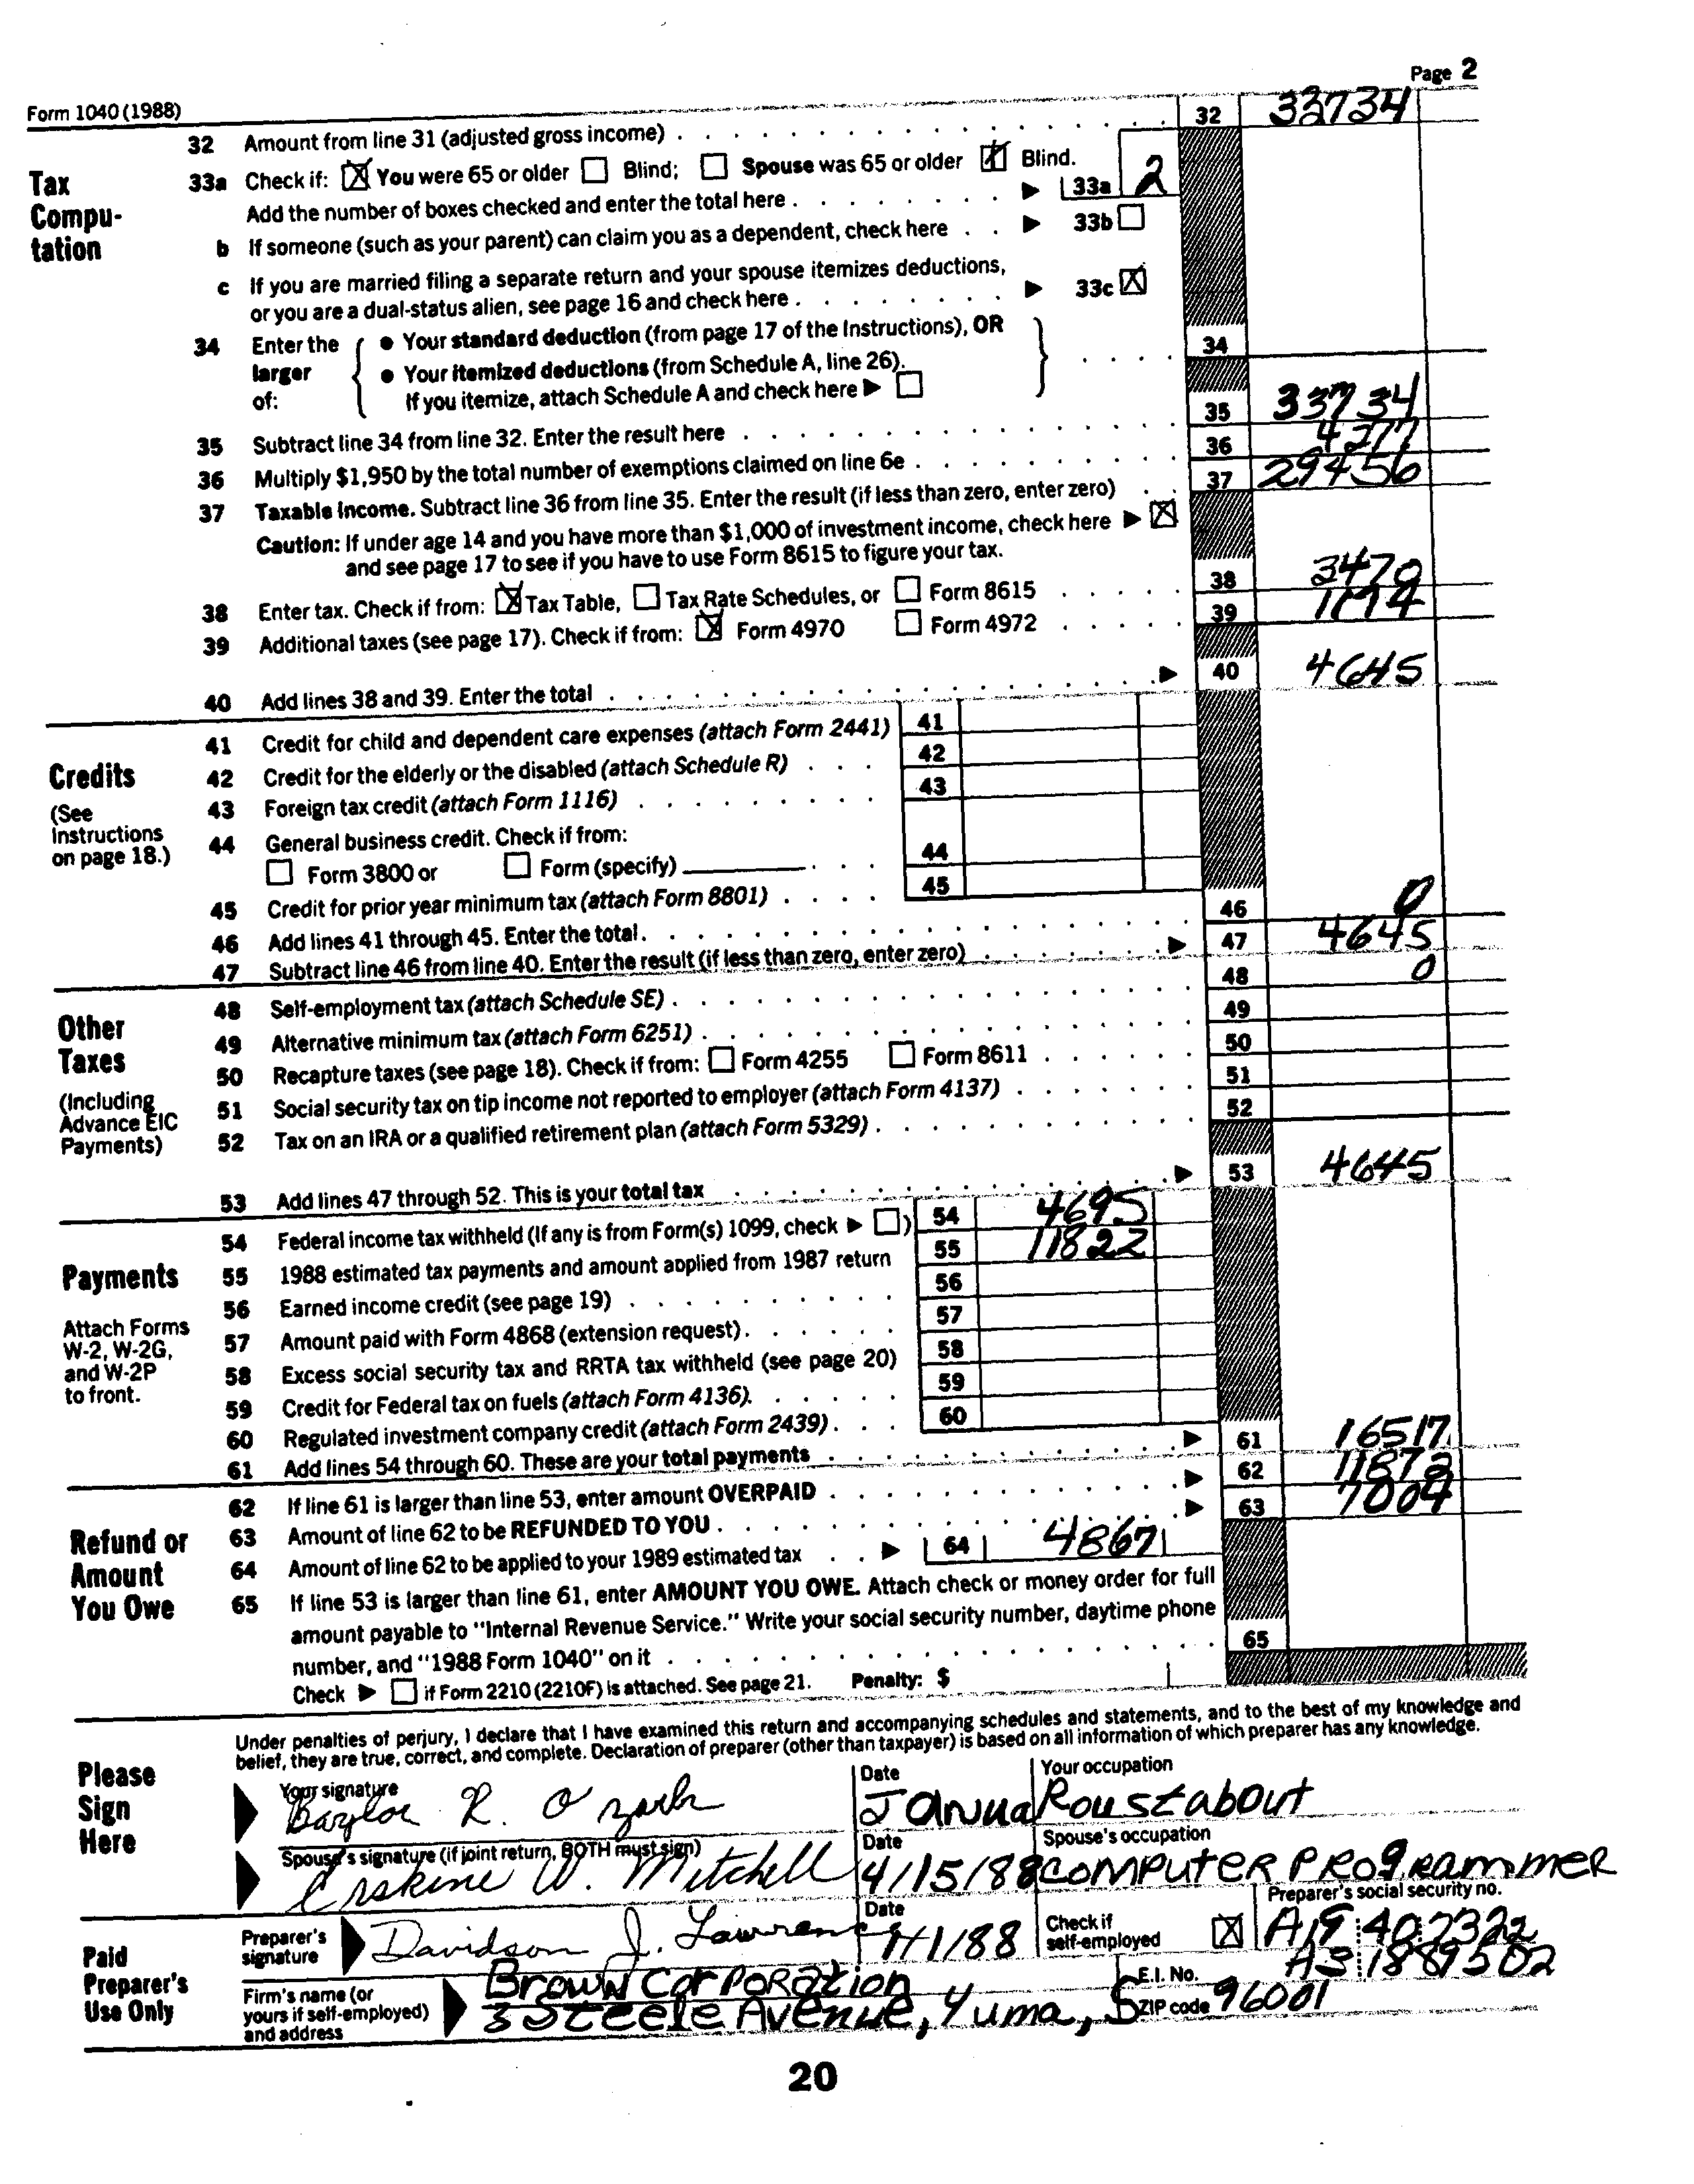 Page 2
Form 1040 (1988)
32 Amount from line 31 (adjusted gross income) 32 33734
Tax Compu- tation
33a Check if: ☒ You were 65 or older ☐ Blind; ☐ Spouse was 65 or older ☒ Blind.
Add the number of boxes checked and enter the total here ▶ 33a 2
b If someone (such as your parent) can claim you as a dependent, check here ▶ 33b ☐
c If you are married filing a separate return and your spouse itemizes deductions,
or you are a dual-status alien, see page 16 and check here ▶ 33c ☒
34 Enter the larger of: { ● Your standard deduction (from page 17 of the Instructions), OR
● Your itemized deductions (from Schedule A, line 26).
If you itemize, attach Schedule A and check here ▶ ☐ } 34
35 Subtract line 34 from line 32. Enter the result here 35 33734
36 Multiply $1,950 by the total number of exemptions claimed on line 6e 36 4277
37 Taxable income. Subtract line 36 from line 35. Enter the result (if less than zero, enter zero) 37 29456
Caution: If under age 14 and you have more than $1,000 of investment income, check here ▶ ☒
and see page 17 to see if you have to use Form 8615 to figure your tax.
38 Enter tax. Check if from: ☒ Tax Table, ☐ Tax Rate Schedules, or ☐ Form 8615 38 3470
39 Additional taxes (see page 17). Check if from: ☒ Form 4970 ☐ Form 4972 39
40 Add lines 38 and 39. Enter the total ▶ 40 4645
Credits
(See Instructions on page 18.)
41 Credit for child and dependent care expenses (attach Form 2441) 41
42 Credit for the elderly or the disabled (attach Schedule R) 42
43 Foreign tax credit (attach Form 1116) 43
44 General business credit. Check if from:
☐ Form 3800 or ☐ Form (specify) 44
45 Credit for prior year minimum tax (attach Form 8801) 45
46 Add lines 41 through 45. Enter the total. 46 0
47 Subtract line 46 from line 40. Enter the result (if less than zero, enter zero) ▶ 47 4645
Other Taxes
(Including Advance EIC Payments)
48 Self-employment tax (attach Schedule SE) 48 0
49 Alternative minimum tax (attach Form 6251) 49
50 Recapture taxes (see page 18). Check if from: ☐ Form 4255 ☐ Form 8611 50
51 Social security tax on tip income not reported to employer (attach Form 4137) 51
52 Tax on an IRA or a qualified retirement plan (attach Form 5329) 52
53 Add lines 47 through 52. This is your total tax ▶ 53 4645
Payments
Attach Forms W-2, W-2G, and W-2P to front.
54 Federal income tax withheld (If any is from Form(s) 1099, check ▶ ☐) 54 4695
55 1988 estimated tax payments and amount applied from 1987 return 55 11822
56 Earned income credit (see page 19) 56
57 Amount paid with Form 4868 (extension request) 57
58 Excess social security tax and RRTA tax withheld (see page 20) 58
59 Credit for Federal tax on fuels (attach Form 4136). 59
60 Regulated investment company credit (attach Form 2439) 60
61 Add lines 54 through 60. These are your total payments ▶ 61 16517
Refund or Amount You Owe
62 If line 61 is larger than line 53, enter amount OVERPAID ▶ 62 11872
63 Amount of line 62 to be REFUNDED TO YOU ▶ 63 7004
64 Amount of line 62 to be applied to your 1989 estimated tax ▶ 64 4867
65 If line 53 is larger than line 61, enter AMOUNT YOU OWE. Attach check or money order for full
amount payable to "Internal Revenue Service." Write your social security number, daytime phone
number, and "1988 Form 1040" on it 65
Check ▶ ☐ if Form 2210 (2210F) is attached. See page 21. Penalty: $
Please Sign Here
Under penalties of perjury, I declare that I have examined this return and accompanying schedules and statements, and to the best of my knowledge and
belief, they are true, correct, and complete. Declaration of preparer (other than taxpayer) is based on all information of which preparer has any knowledge.
Your signature Date Your occupation
Baylor R. Ozark Janua Roustabout
Spouse's signature (if joint return, BOTH must sign) Date Spouse's occupation
Erskine W. Mitchell 4/15/88 COMPUTER PROgRammER
Paid Preparer's Use Only
Preparer's signature Davidson J. Lawrence Date 1/1/88 Check if self-employed ☒ Preparer's social security no. A19 40 7322
Firm's name (or yours if self-employed) and address Brown Corporation E.I. No. A3 1889502
3 Steele Avenue, Yuma, S ZIP code 96001
20